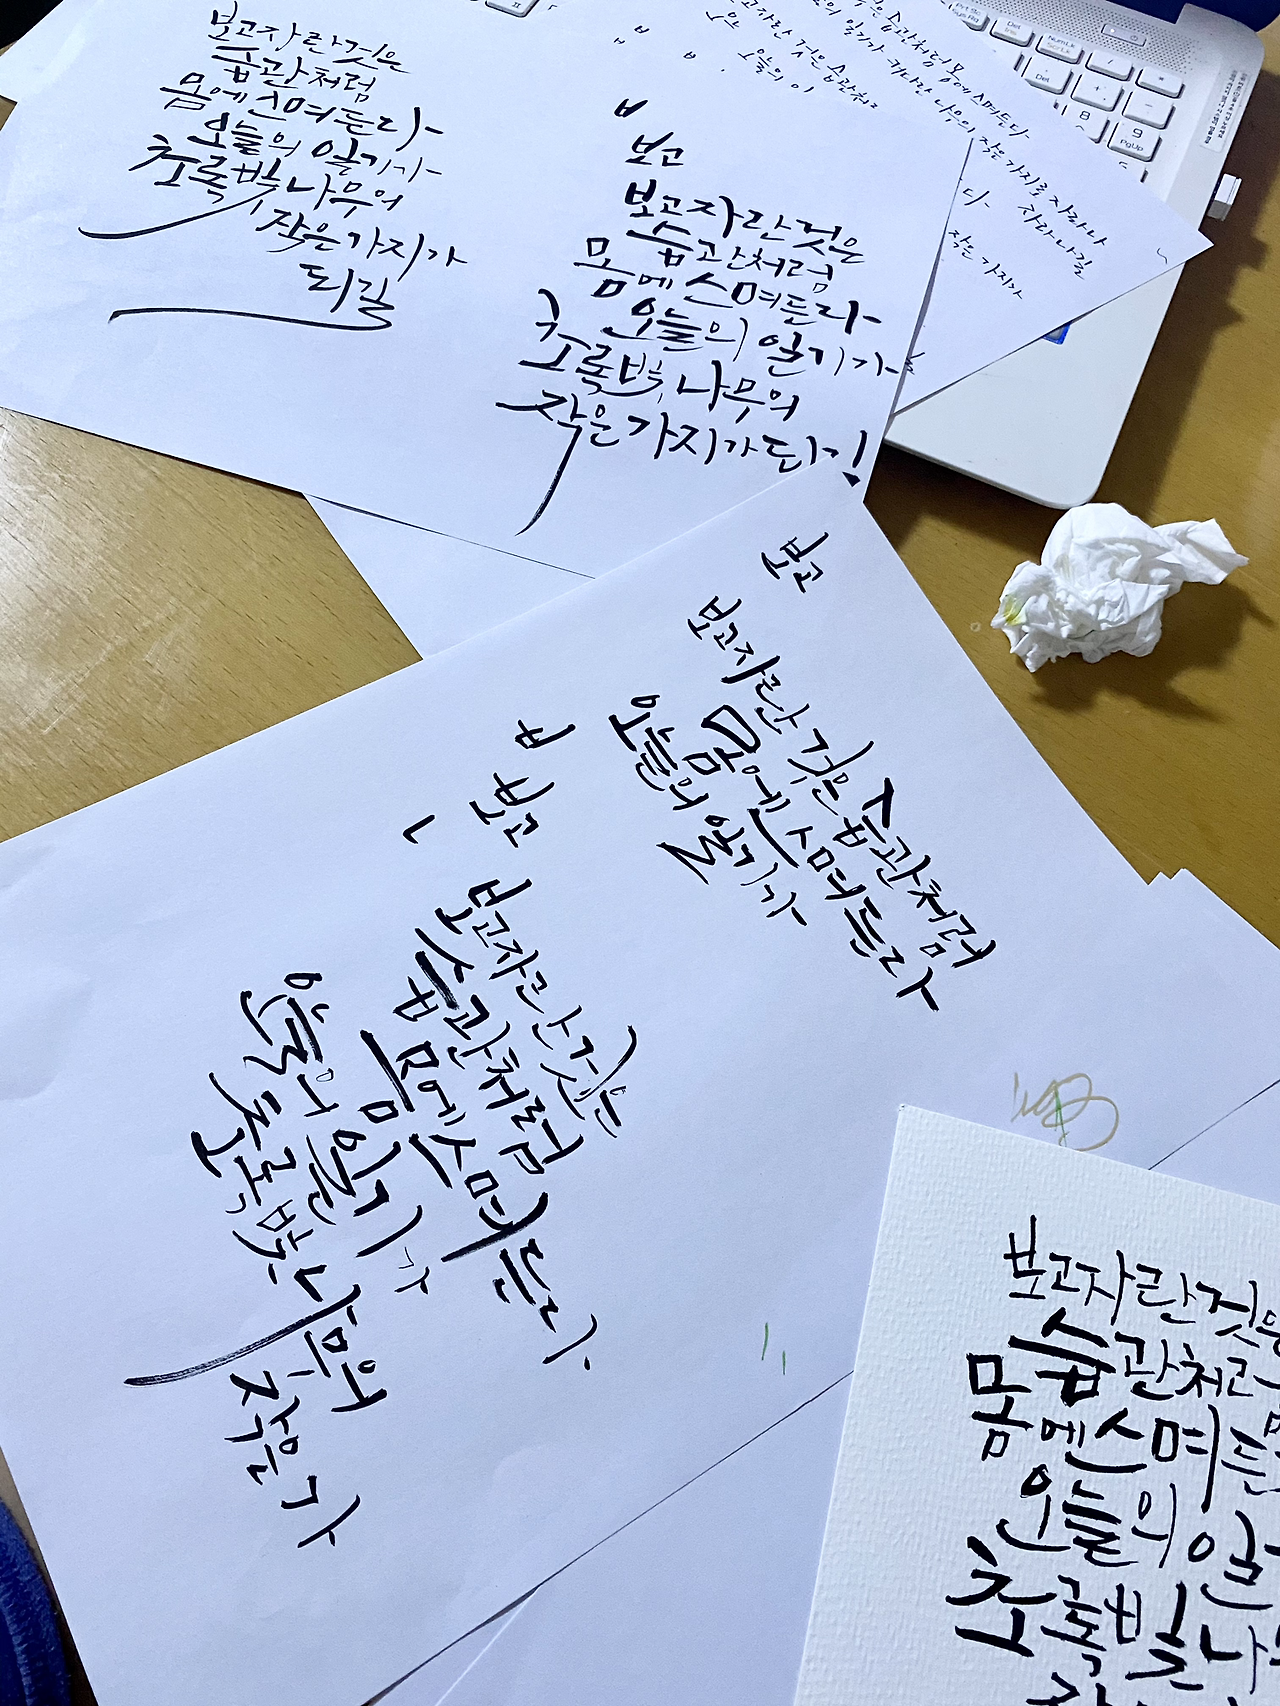 보고자란것은
습관처럼
몸에스며든다
오늘의 일기가
초록빛나무의
작은가지가
되길
ㅂ
보고
보고자란것은
습관처럼
몸에스며든다
오늘의 일기가
초록빛나무의
작은가지가되기!
습관처럼몸에스며든다
커다란 나무의 작은가지로 자라나
보고자란 것은 습관처럼
오늘의 이
다. 자라나길
작은가지가
보고
보고자란 것은 습관처럼
몸에스며든다
오늘의 일기가
ㅂ
보고
보고자란것은
습관처럼
몸에스며든다
오늘의 일기가
초록빛나무의
작은가
보고자란것은
습관처럼
몸에스며든
오늘의 일
초록빛나
Prt Sc
SysRq
Del
Ins
NumLk
ScrLk
/
*
Del
+
-
8
9
PgUp